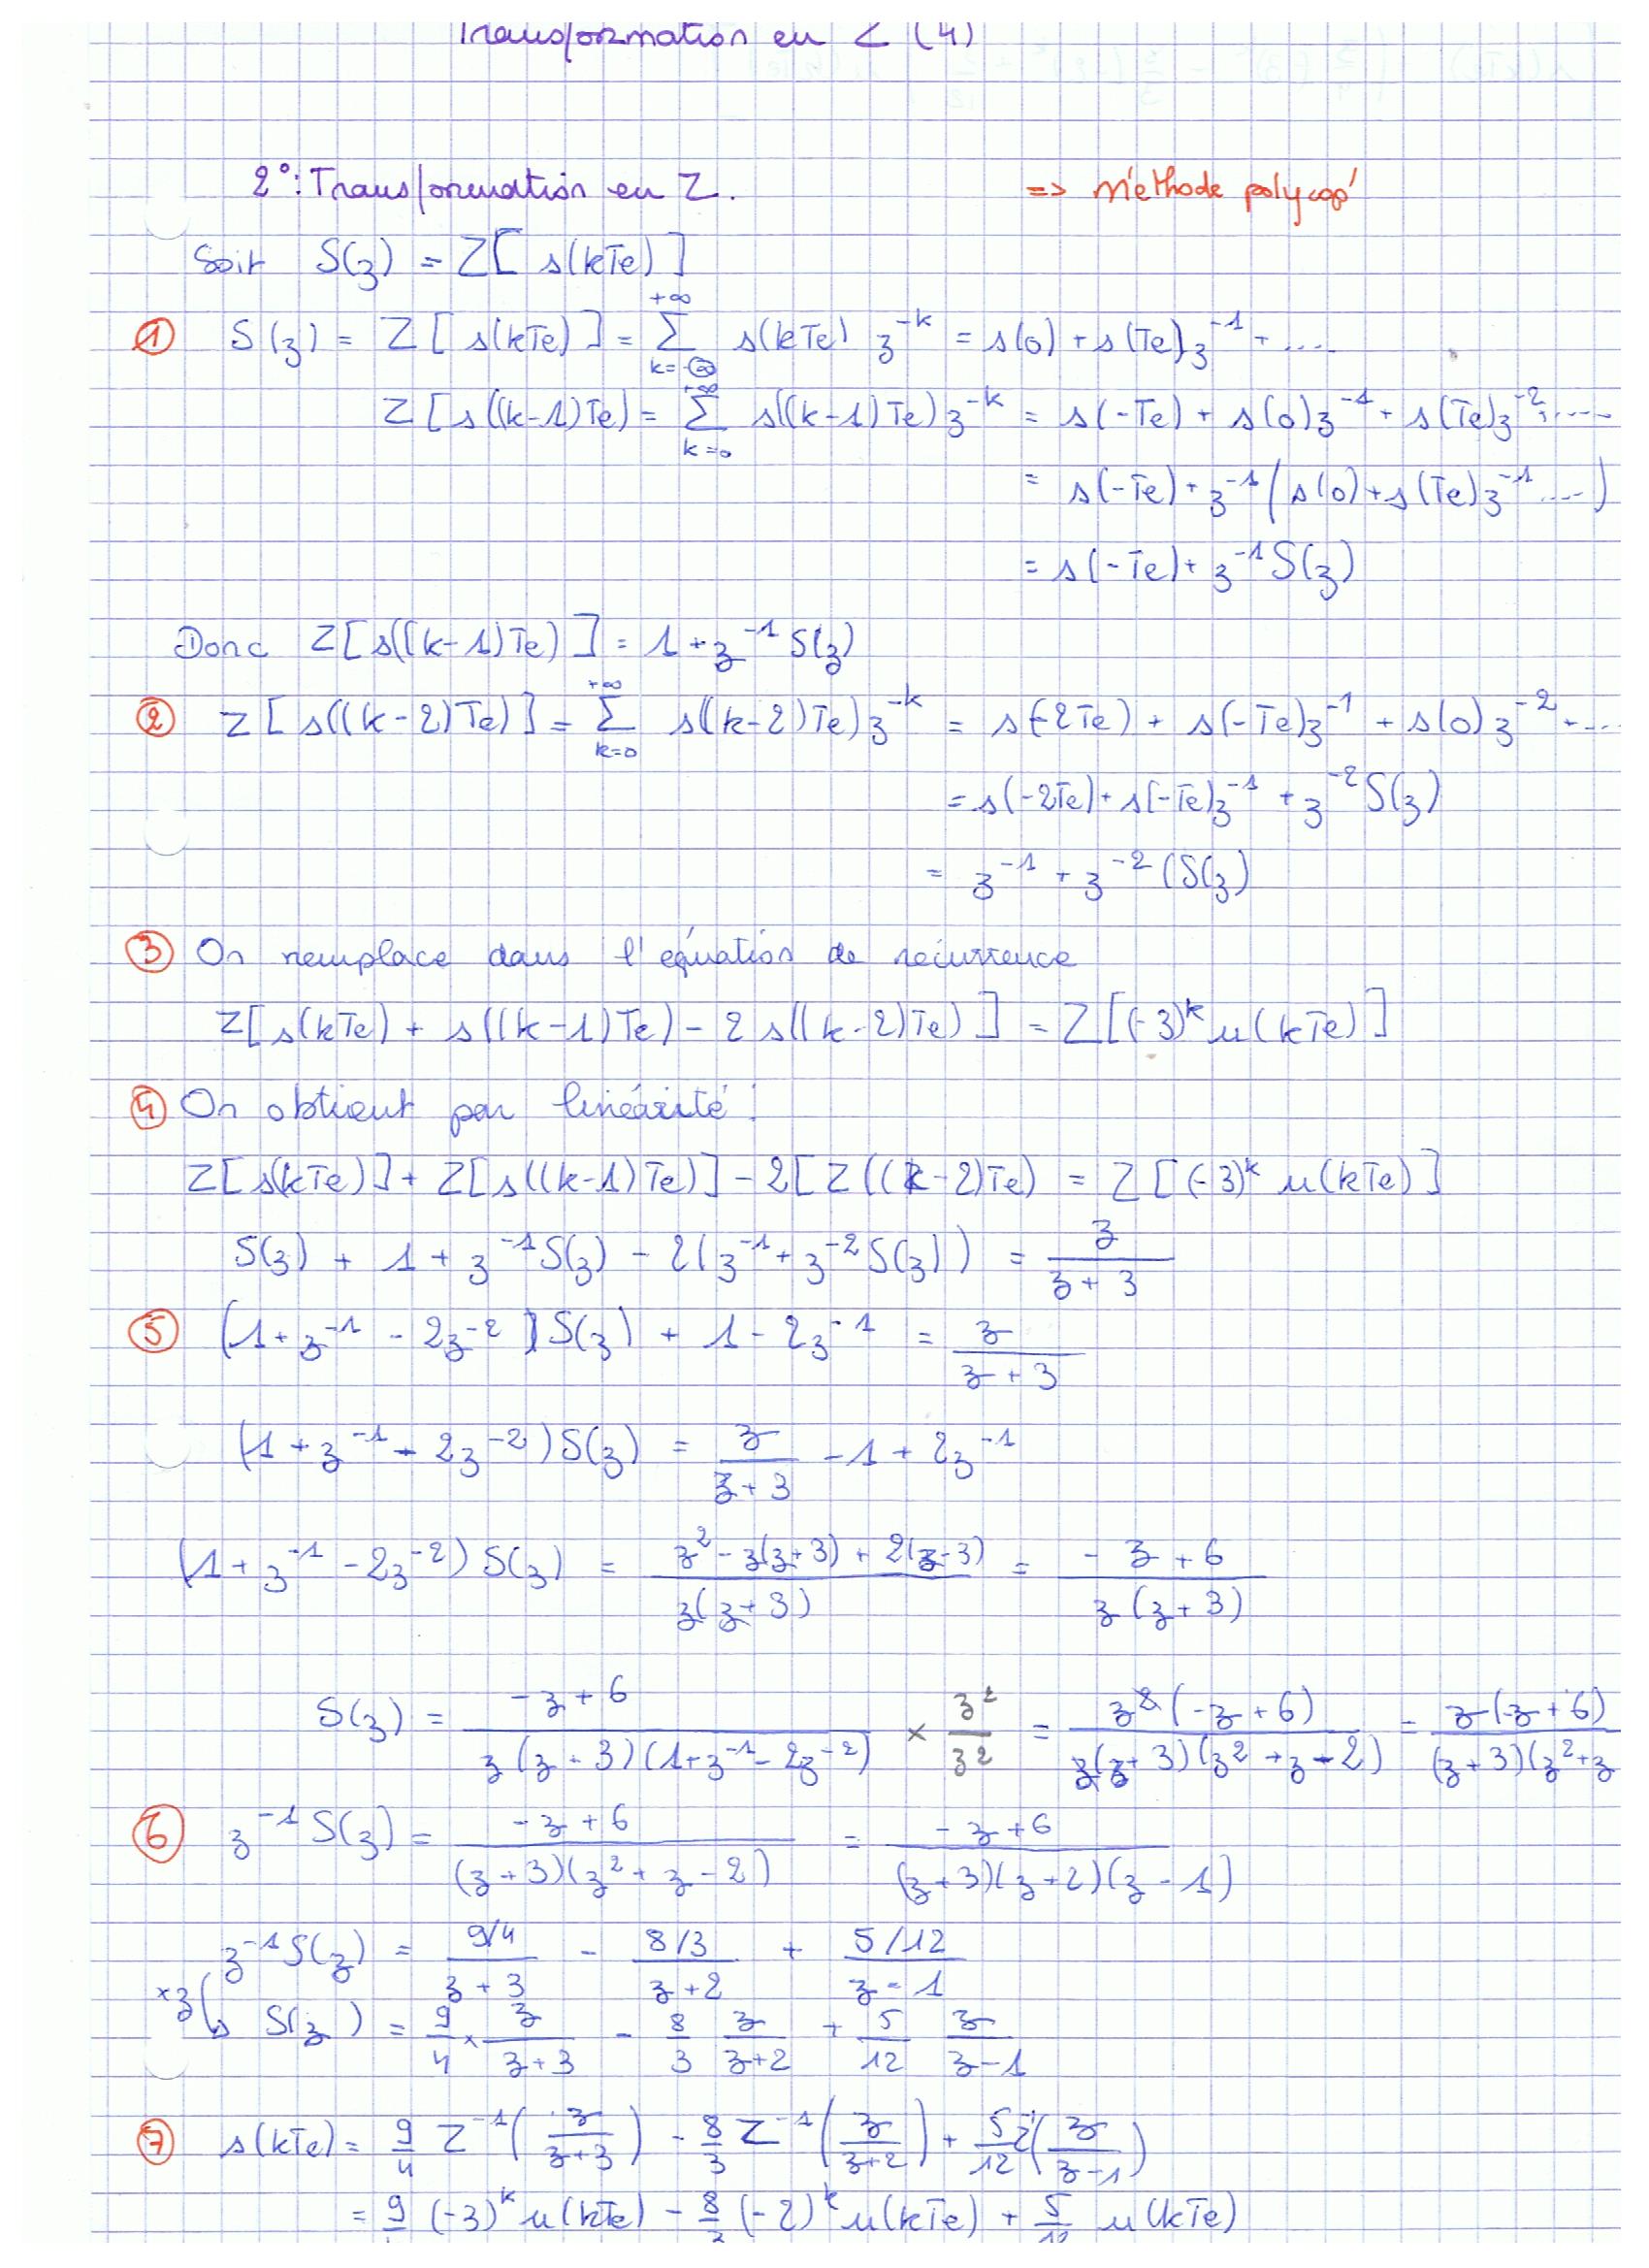 Transformation en Z (4)
2°: Transformation en Z. => Méthode polycop'
Soit S(z) = Z[ s(kTe) ]
① S(z) = Z[ s(kTe) ] = Σ_{k=-∞}^{+∞} s(kTe) z^{-k} = s(0) + s(Te)z^{-1} + ....
Z[ s((k-1)Te) = Σ_{k=0}^{+∞} s((k-1)Te) z^{-k} = s(-Te) + s(0)z^{-1} + s(Te)z^{-2} + ....
= s(-Te) + z^{-1} ( s(0) + s(Te)z^{-1} .... )
= s(-Te) + z^{-1} S(z)
Donc Z[ s((k-1)Te) ] = 1 + z^{-1} S(z)
② Z[ s((k-2)Te) ] = Σ_{k=0}^{+∞} s((k-2)Te) z^{-k} = s(-2Te) + s(-Te)z^{-1} + s(0) z^{-2} + ...
= s(-2Te) + s(-Te)z^{-1} + z^{-2} S(z)
= z^{-1} + z^{-2} (S(z)
③ On remplace dans l'équation de récurrence
Z[ s(kTe) + s((k-1)Te) - 2 s((k-2)Te) ] = Z[ (-3)^k u(kTe) ]
④ On obtient par linéarité :
Z[ s(kTe) ] + Z[ s((k-1)Te) ] - 2[ Z((k-2)Te) = Z[ (-3)^k u(kTe) ]
S(z) + 1 + z^{-1} S(z) - 2(z^{-1} + z^{-2} S(z)) = z/(z + 3)
⑤ (1 + z^{-1} - 2z^{-2}) S(z) + 1 - 2z^{-1} = z/(z + 3)
(1 + z^{-1} - 2z^{-2}) S(z) = z/(z + 3) - 1 + 2z^{-1}
(1 + z^{-1} - 2z^{-2}) S(z) = (z^2 - z(z+3) + 2(z-3))/(z(z+3)) = (- z + 6)/(z(z+3))
S(z) = (-z + 6)/(z(z+3)(1+z^{-1}-2z^{-2})) × z^2/z^2 = z^2(-z+6)/(z(z+3)(z^2+z-2)) = z(-z+6)/((z+3)(z^2+z
⑥ z^{-1} S(z) = (-z + 6)/((z+3)(z^2+z-2)) = (-z+6)/((z+3)(z+2)(z-1))
z^{-1} S(z) = (9/4)/(z + 3) - (8/3)/(z+2) + (5/12)/(z - 1)
×z ↳ S(z) = 9/4 × z/(z+3) - 8/3 z/(z+2) + 5/12 z/(z-1)
⑦ s(kTe) = 9/4 Z^{-1}(z/(z+3)) - 8/3 Z^{-1}(z/(z+2)) + 5/12 Z^{-1}(z/(z-1))
= 9/4 (-3)^k u(kTe) - 8/3 (-2)^k u(kTe) + 5/12 u(kTe)